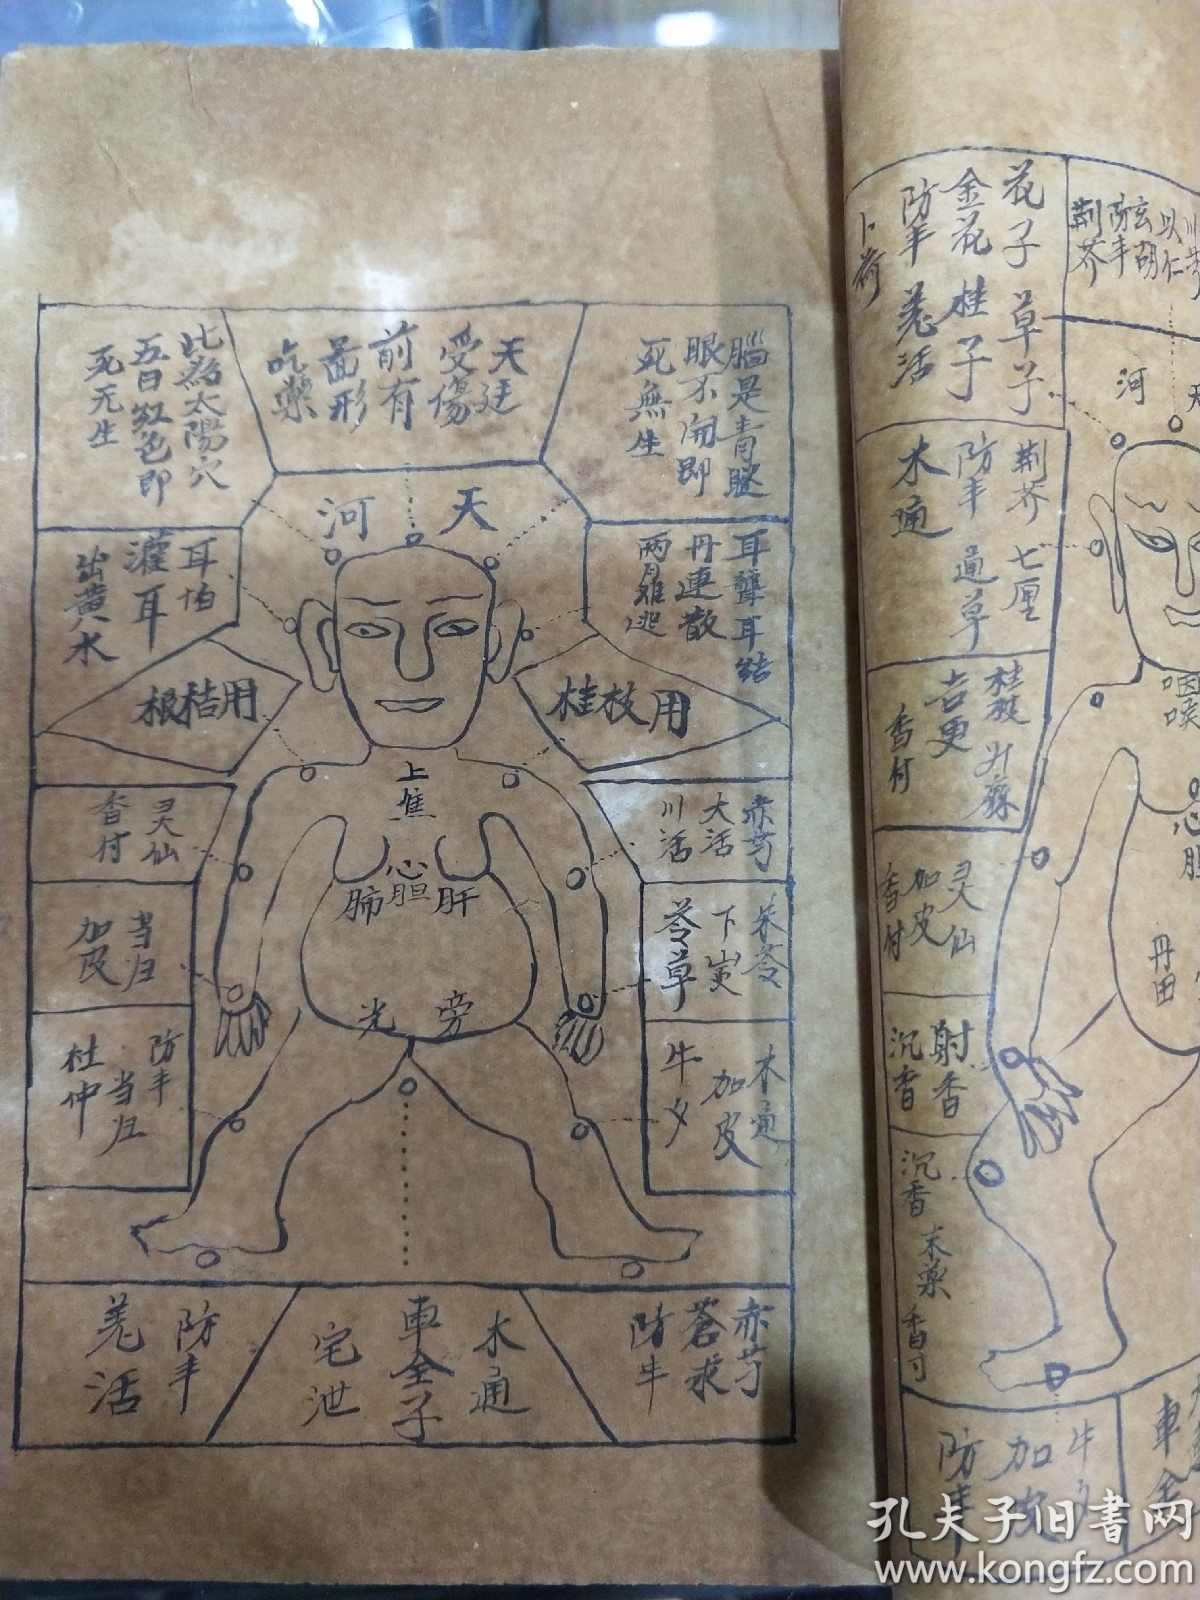 腦是青腿
眼不開即
死無生
天廷
受傷
前有
啚形
吃藥
比為太陽穴
五日红色即
死无生
河 天
耳聾耳結
丹連散
兩月难逃
耳怕
灌耳
出黄水
桂枝用
根桔用
上焦
心
胆
肺
肝
旁
光
赤芍
大活
川活
灵仙
香付
朱苓
下
苓草
当归
加皮
木通
加皮
牛夕
防丰
当归
杜仲
赤芍
蒼求
防丰
木通
車全子
宅泄
防丰
羌活
川芎
以仁
玄胡
防丰
荆芥
花子 草子
金花 桂子
防丰 羌活
卜荷
河
天
荆芥 七厘
防丰 通草
木通
桂枝 升麻
吉更
香付
咽
心
胆
丹田
灵仙
加皮
香付
射香
沉香
沉香 末藥 香付
牛夕
加皮
防丰
車全
孔夫子旧书网
www.kongfz.com